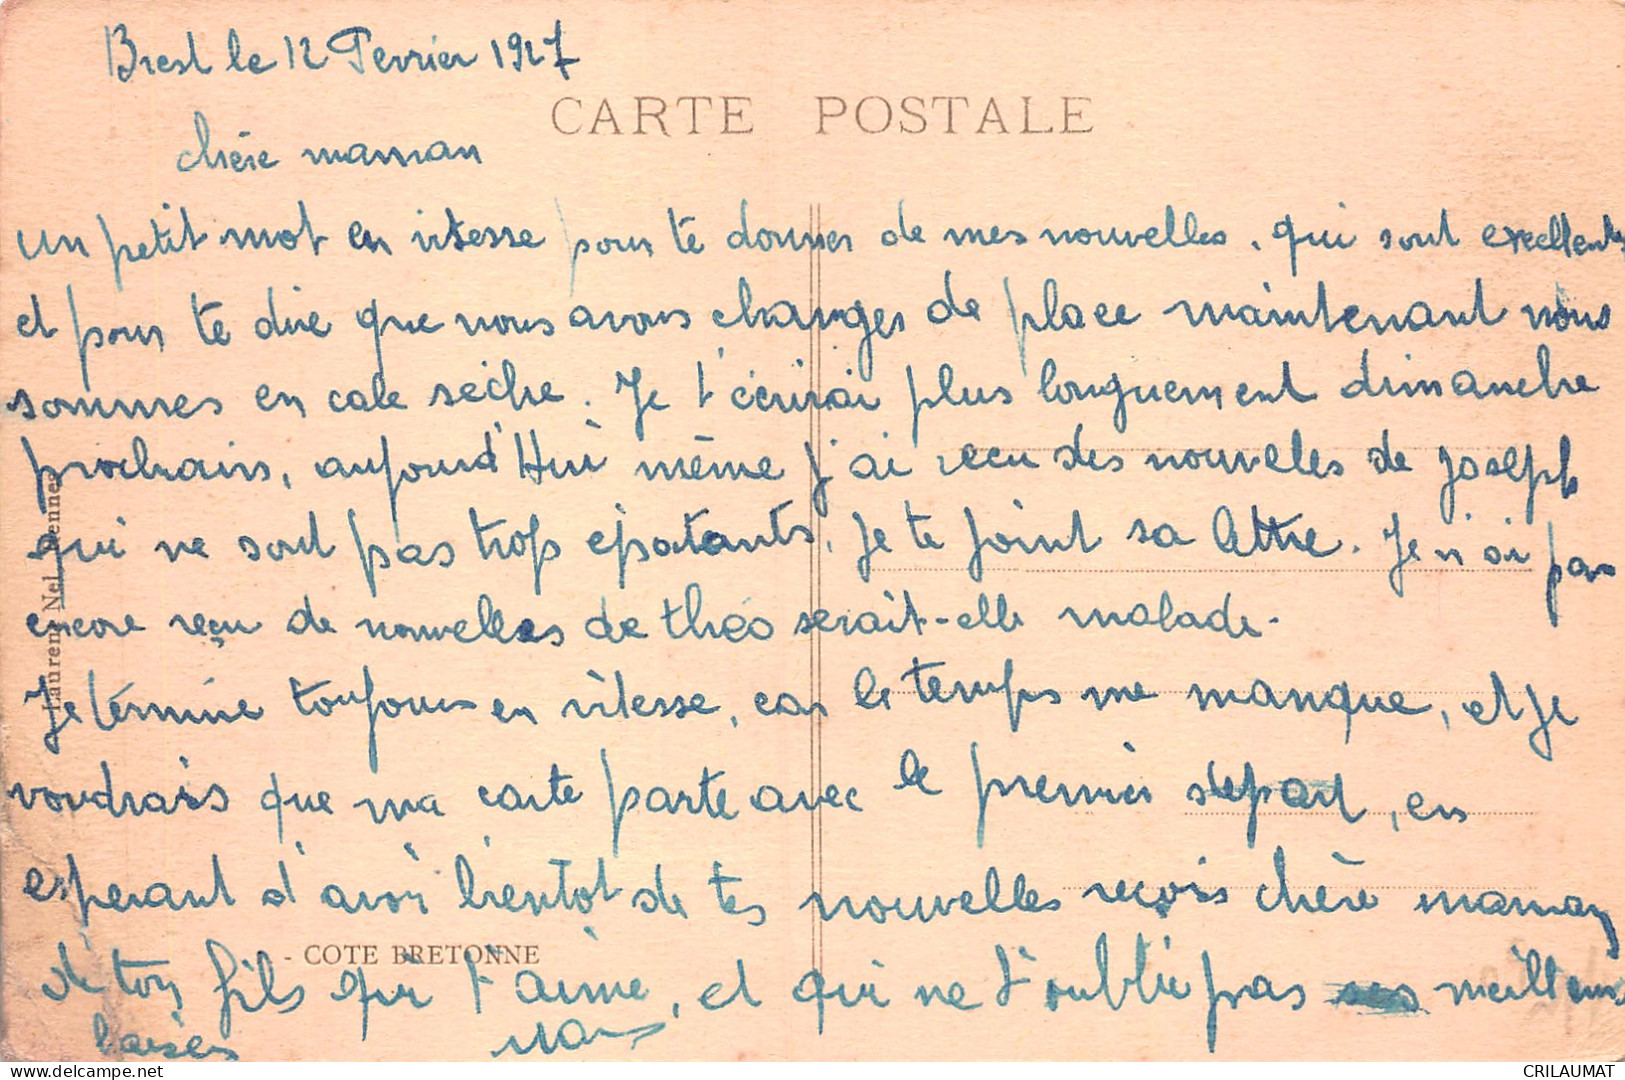 Brest le 12 Fevrier 1927
CARTE POSTALE
chère maman
un petit mot en vitesse pour te donner de mes nouvelles, qui sont excellentes
et pour te dire que nous avons changer de place maintenant nous
sommes en cale sèche. Je t'écrirai plus longuement dimanche
prochain, aujourd'Hui même j'ai recu des nouvelles de Joseph
qui ne sont pas trop épatants, je te joint sa lettre. Je n'ai pas
encore reçu de nouvelles de théo serait-elle malade.
Je términe toujours en vitesse, car le temps me manque, et je
voudrais que ma carte parte avec le premier départ, en
esperant d'avoir bientot de tes nouvelles reçois chère maman
de ton fils qui t'aime, et qui ne t'oublie pas meilleurs
baisers
Laurent Nel Rennes
- COTE BRETONNE
www.delcampe.net
CRILAUMAT